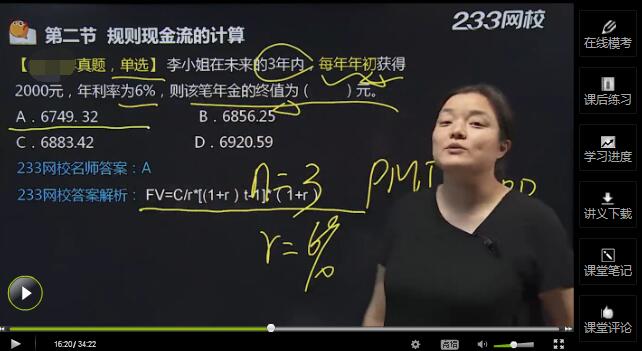 233网校
第二节 规则现金流的计算
【真题，单选】李小姐在未来的3年内，每年年初获得
2000元，年利率为6%，则该笔年金的终值为（ ）元。
A．6749.32 B．6856.25
C．6883.42 D．6920.59
233网校名师答案：A
233网校答案解析：FV=C/r*[(1+r）t-1]*（1+r）
n=3
PMT
r=6%
在线模考
课后练习
学习进度
讲义下载
课堂笔记
课堂评论
16:20/34:22